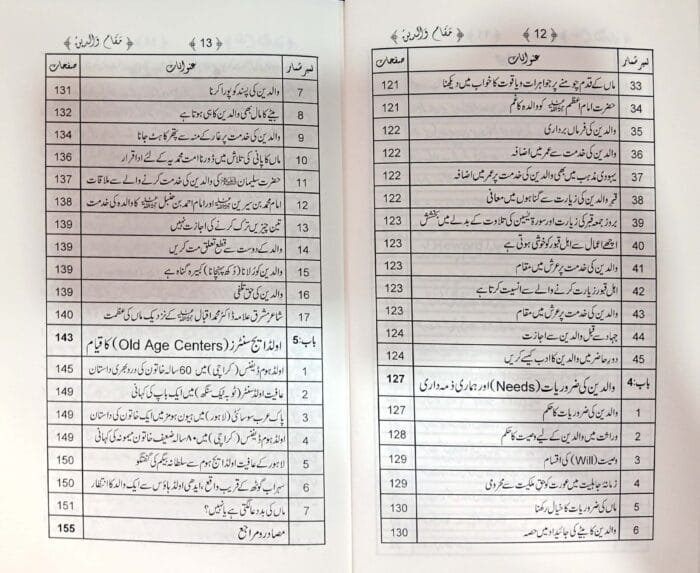 ﴿ 12 ﴾ ﴿ مَقامِ وَالدین ﴾
نمبر شمار عنوانات صفحات
33 ماں کے قدم چومنے پر جواہرات و یاقوت کا خواب میں دیکھنا 121
34 حضرت امام اعظم کو والدہ کا غم 121
35 والدین کی فرماں برداری 122
36 والدین کی خدمت سے عمر میں اضافہ 122
37 یہودی مذہب میں بھی والدین کی خدمت پر عمر میں اضافہ 122
38 قبرِ والدین کی زیارت سے گناہوں میں معافی 122
39 بروز جمعہ قبر کی زیارت اور سورۃ یٰسین کی تلاوت کے بدلے میں بخشش 123
40 اچھے اعمال سے اہلِ قبور کو خوشی ہوتی ہے 123
41 والدین کی خدمت پر عرش میں مقام 123
42 اہلِ قبور زیارت کرنے والے سے انسیت کرتا ہے 123
43 والدین کی خدمت پر عرش میں مقام 123
44 جہاد سے قبل والدین سے اجازت 124
45 دور حاضر میں والدین کا ادب کیسے کریں 124
باب:4 والدین کی ضروریات (Needs) اور ہماری ذمہ داری 127
1 والدین کی ضروریات کا حکم 127
2 وراثت میں والدین کے لیے وصیت کا حکم 128
3 وصیت (Will) کی اقسام 129
4 زمانۂ جاہلیت میں عورت کو حق ملکیت سے محرومی 129
5 ماں کی ضروریات کا خیال رکھنا 130
6 والدین کا بیٹے کی جائیداد میں حصہ 130
﴿ 13 ﴾ ﴿ مَقامِ وَالدین ﴾
نمبر شمار عنوانات صفحات
7 والدین کی پسند کو پورا کرنا 131
8 بیٹے کا مال بھی والدین کا ہی ہوتا ہے 132
9 والدین کی خدمت پر غار کے منہ سے پتھر کا ہٹ جانا 134
10 ماں کا پانی کی تلاش میں دوڑنا امت محمدیہ کے لئے ادا قرار 136
11 حضرت سلیمان کی والدین کی خدمت کرنے والے سے ملاقات 137
12 امام محمد بن سیرین اور امام احمد بن حنبل کا والدہ کی خدمت 138
13 تین چیزیں ترک کرنے کی اجازت نہیں 139
14 والد کے دوست سے قطع تعلق مت کریں 139
15 والدین کو رُلانا (دُکھ پہنچانا) کبیرہ گناہ ہے 139
16 والدین کی حق تلفی 139
17 شاعر مشرق علامہ ڈاکٹر محمد اقبال کے نزدیک ماں کی عظمت 140
باب:5 اولڈ ایج سنٹرز (Old Age Centers) کا قیام 143
1 اولڈ ہوم ڈیفنس (کراچی) میں 60 سالہ خاتون کی درد بھری داستان 145
2 عافیت اولڈ سنٹر (ٹوبہ ٹیک سنگھ) میں ایک باپ کی کہانی 149
3 پاک عرب سوسائٹی (لاہور) میں ہیون ہومز میں ایک خاتون کی داستان 149
4 اولڈ ہوم ڈیفنس (کراچی) میں ۸۰ سالہ ضعیف خاتون میمونہ کی کہانی 149
5 لاہور کے عافیت اولڈ ایج ہوم سے سلطانہ بیگم کی گفتگو 150
6 سہراب گوٹھ کے قریب واقع، ایدھی اولڈ ہاؤس سے ایک والد کا انتظار 150
7 ماں کی بددعا لگتی ہے یا نہیں؟ 151
مصادر و مراجع 155